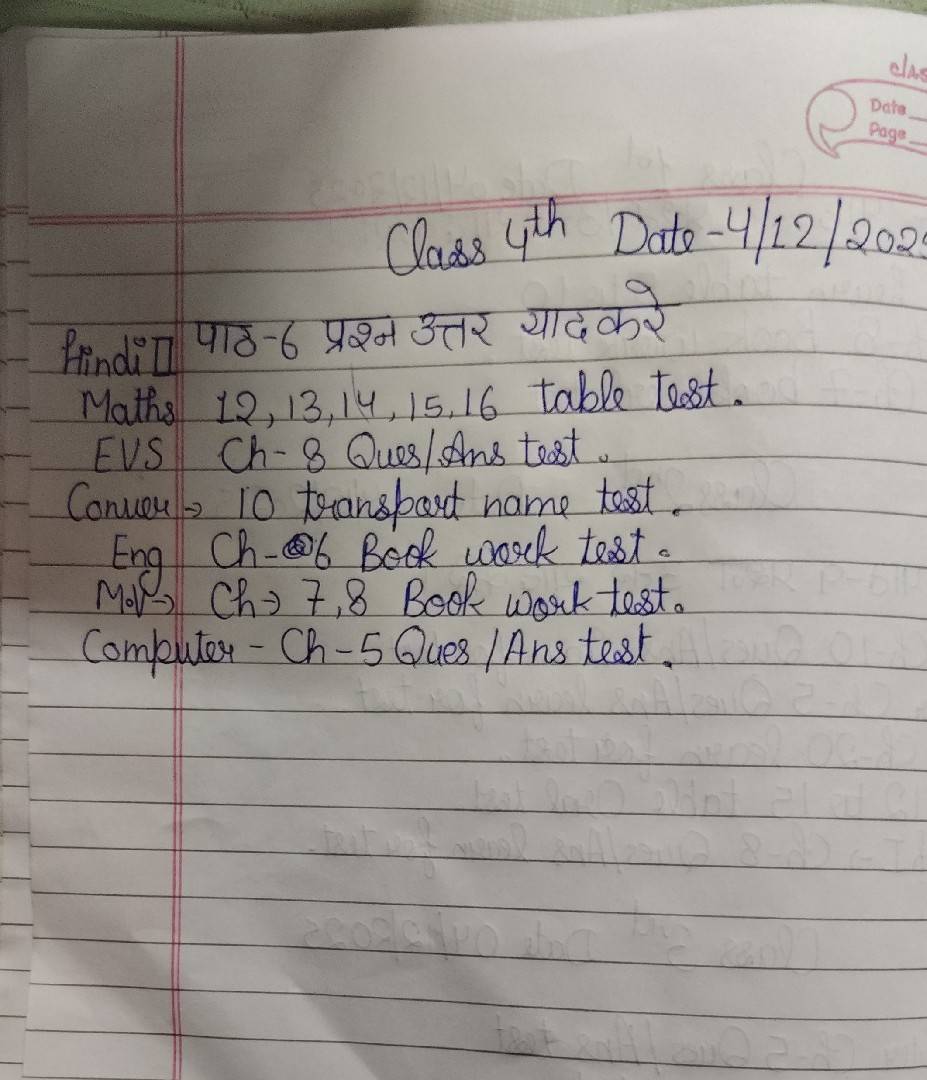 clAs
Date
Page
Class 4th Date-4/12/202
Hindi II पाठ-6 प्रश्न उत्तर याद करे
Maths 12,13,14,15,16 table test.
EVS Ch-8 Ques/Ans test.
Conver→ 10 transport name test.
Eng Ch-6 Book work test.
M.V→ Ch→ 7,8 Book work test.
Computer - Ch-5 Ques/Ans test.